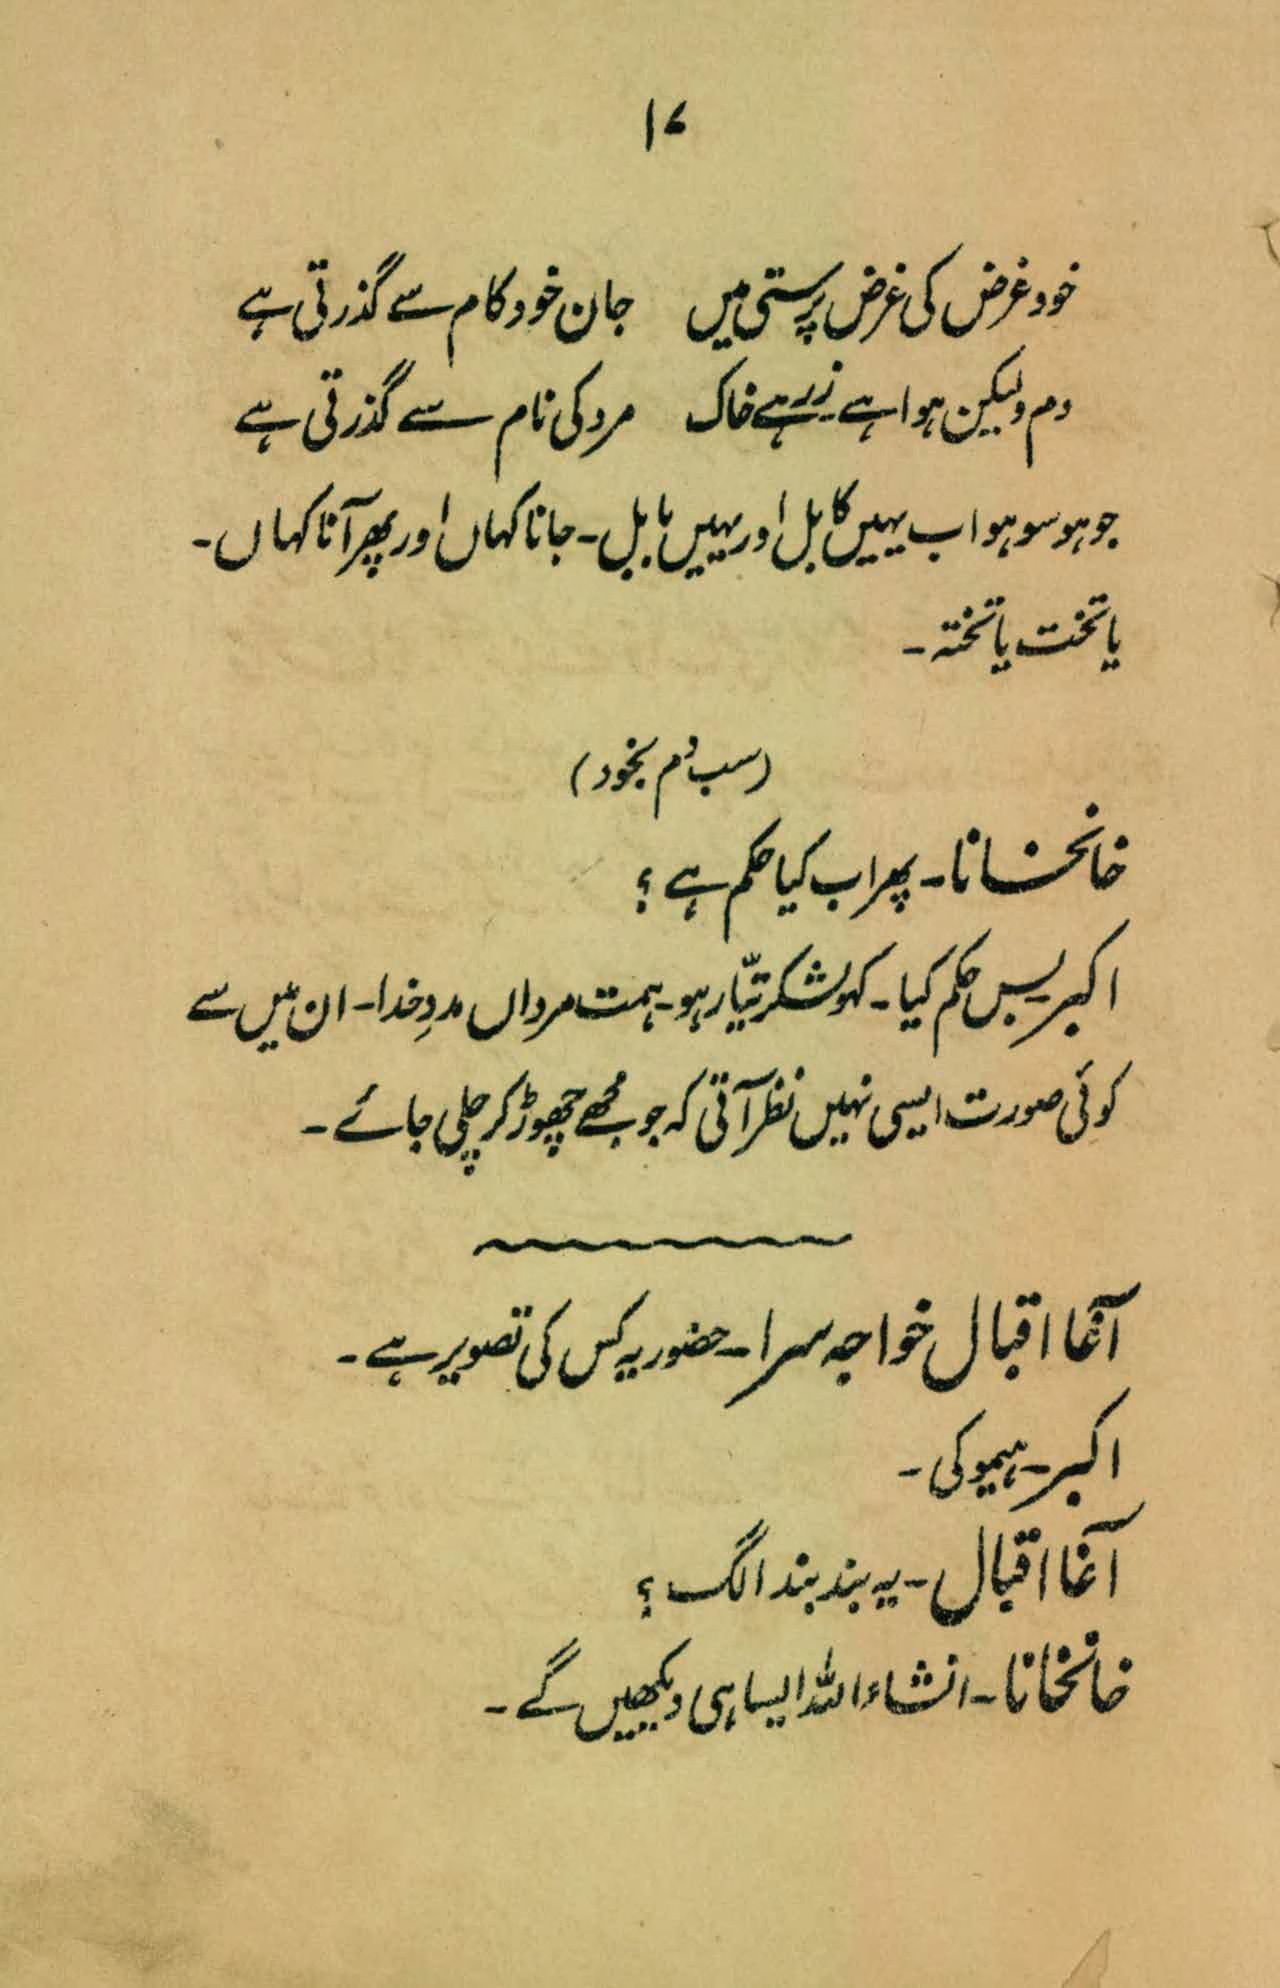 ۱۷
خود غرض کی غرض پرستی میں جان خود کام سے گذرتی ہے
دم ولیکن ہوا ہے۔ زر ہے خاک مرد کی نام سے گذرتی ہے
جو ہو سو ہو اب یہیں کابل اور یہیں بابل۔ جانا کہاں اور پھر آنا کہاں۔
یا تخت یا تختہ۔
(سب دم بخود)
خانخانا۔ پھر اب کیا حکم ہے؟
اکبر۔ بس حکم کیا۔ کہو لشکر تیّار ہو۔ ہمت مرداں مددِ خدا۔ ان میں سے
کوئی صورت ایسی نہیں نظر آتی کہ جو مجھے چھوڑ کر چلی جائے۔
آغا اقبال خواجہ سرا۔ حضور یہ کس کی تصویر ہے۔
اکبر۔ ہیمو کی۔
آغا اقبال۔ یہ بند بند الگ؟
خانخانا۔ انشاء اللہ ایسا ہی دیکھیں گے۔